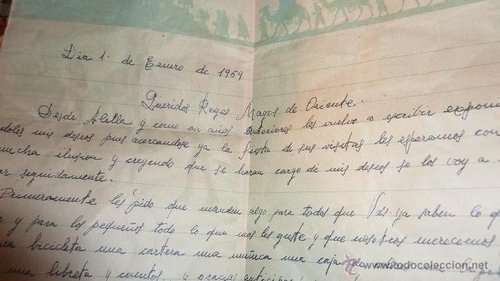 Día 1. de Enero de 1959
Queridos Reyes Magos de Oriente.
Desde Alella y como en años anteriores les vuelvo a escribir expon
doles mis deseos pues acercandose ya la fiesta de sus visitas les esperamos con
mucha ilusion y creyendo que se haran cargo de mis deseos se los voy a
ar seguidamente.
Primeramente les pido que manden algo para todos que Vds. ya saben lo q
a y para los pequeños todo lo que mas les guste y que nosotros merecemos
na bicicleta una cartera una muñeca una caja de
una libreta y cuentos, y gracias
www.todocoleccion.net